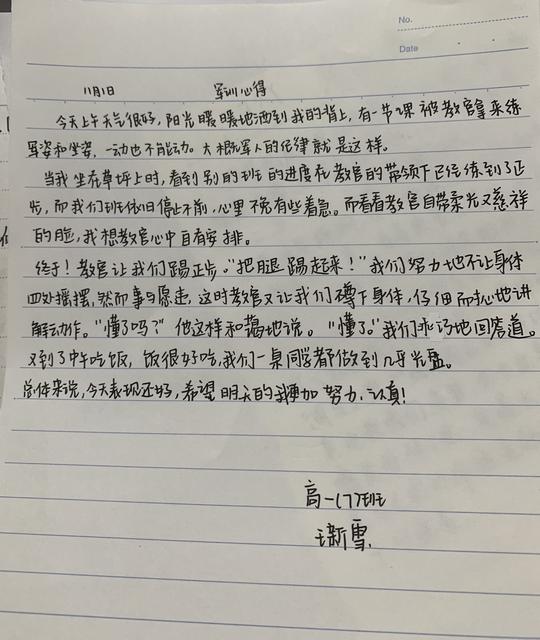 No.
Date
11月1日 军训心得
今天上午天气很好,阳光暖暖地洒到我的背上,有一节课被教官拿来练
军姿和坐姿,一动也不能动。大概军人的纪律就是这样。
当我坐在草坪上时,看到别的班的进度在教官的带领下已经练到了正
步,而我们班依旧停止不前,心里不免有些着急。而看看教官自带柔光又慈祥
的脸,我想教官心中自有安排。
终于!教官让我们踢正步。“把腿踢起来!”我们努力地不让身体
四处摇摆,然而事与愿违,这时教官又让我们蹲下身体,仔细而耐心地讲
解动作。“懂了吗?”他这样和蔼地说。“懂了。”我们乖巧地回答道。
又到了中午吃饭,饭很好吃,我们一桌同学都做到几乎光盘。
总体来说,今天表现还好,希望明天的我更加努力、认真!
高一(7)班
王新雪.